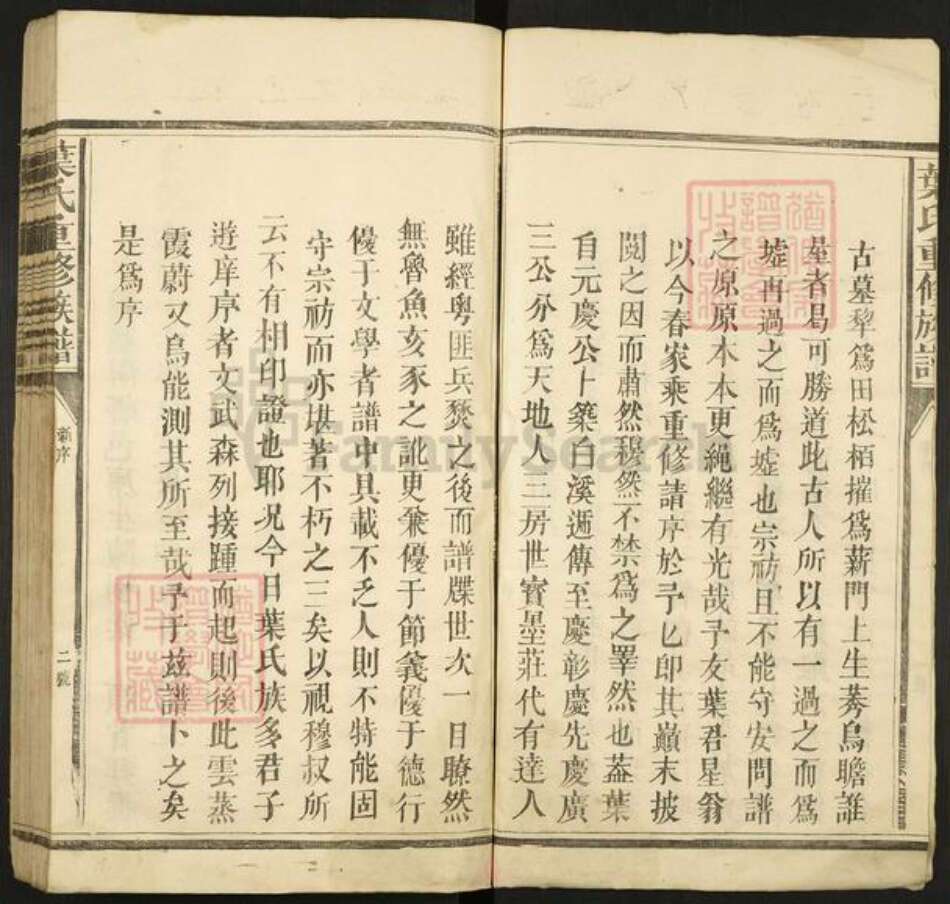 葉氏重修族譜
古墓犂爲田松栢摧爲薪門上生莠烏瞻誰
星者曷可勝道此古人所以有一過之而爲
墟再過之而爲墟也宗祊且不能守安問譜
之原原本本更繩繼有光哉予友葉君星翁
以今春家乘重修請序於予乜卽其巔末披
閱之因而肅然穆然不禁爲之睪然也葢葉
自元慶公卜築白溪遞傳至慶彰慶先慶廣
三公分爲天地人三房世寳墨莊代有達人
雖經粤匪兵燹之後而譜牒世次一目瞭然
無魯魚亥豕之訛更兼優于節義優于德行
優于文學者譜中具載不乏人則不特能固
守宗祊而亦堪著不朽之三矣以視穆叔所
云不有相印證也耶况今日葉氏族多君子
遊庠序者文武森列接踵而起則後此雲蒸
霞蔚又烏能測其所至哉予于兹譜卜之矣
是爲序
葉氏重修族譜
新序
二號
FamilySearch